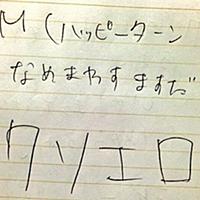 M(ハッピーターン
なめまわすますだ
クソエロ